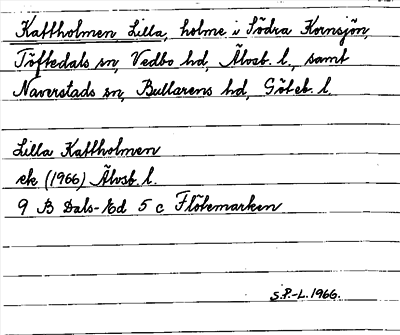 Kattholmen Lilla, holme i Södra Kornsjön,
Töftedals sn, Vedbo hd, Älvsb. l., samt
Naverstads sn, Bullarens hd, Göteb. l.
Lilla Kattholmen
ek (1966) Älvsb. l.
9 B Dals-Ed 5 c Flötemarken
S.P.-L. 1966.